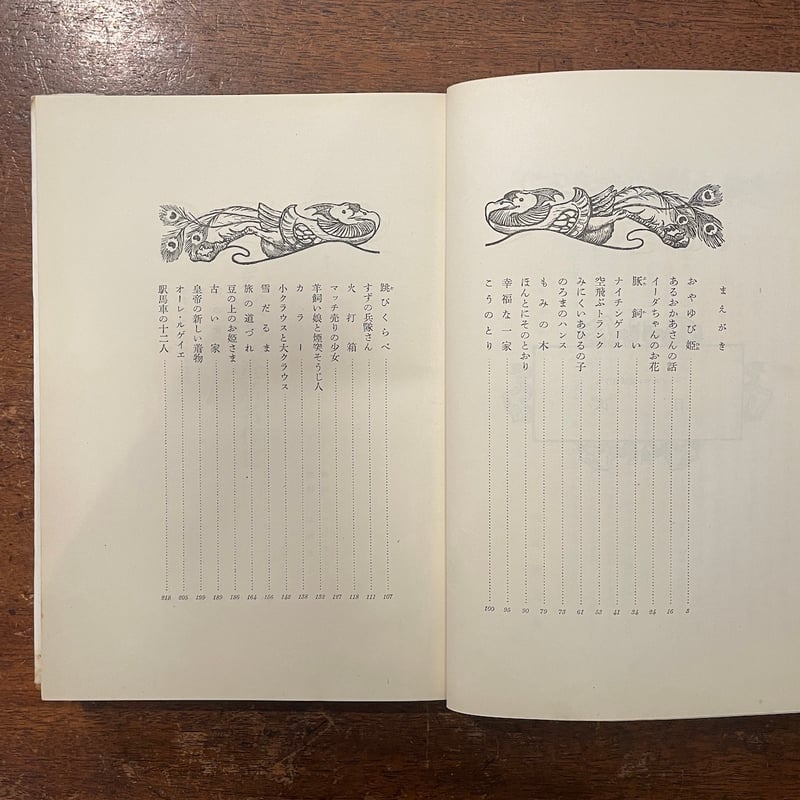 まえがき
おやゆび姫 5
あるおかあさんの話 16
イーダちゃんのお花 24
豚飼い 34
ナイチンゲール 41
空飛ぶトランク 53
みにくいあひるの子 61
のろまのハンス 73
もみの木 79
ほんとにそのとおり 90
幸福な一家 95
こうのとり 100
跳びくらべ 107
すずの兵隊さん 111
火打箱 118
マッチ売りの少女 127
羊飼い娘と煙突そうじ人 132
カラー 138
小クラウスと大クラウス 142
雪だるま 156
旅の道づれ 164
豆の上のお姫さま 186
古い家 189
皇帝の新しい着物 199
オーレ・ルゲイエ 205
駅馬車の十二人 218